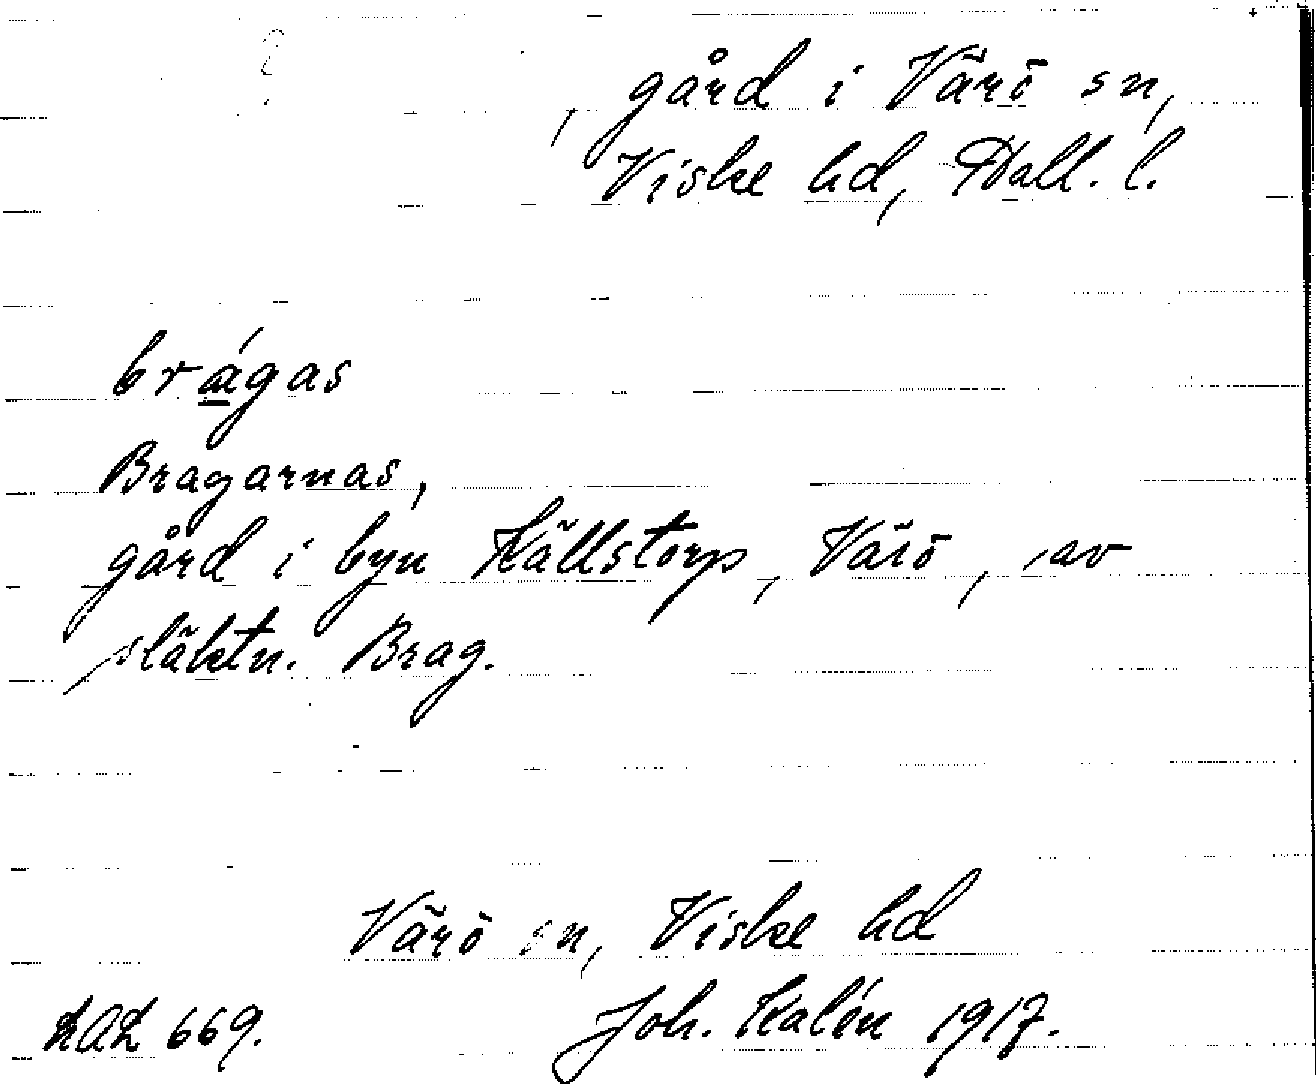 , gård i Värö sn,
Viske hd, Hall. l.
brágas
Bragarnas,
gård i byn Källstorp, Värö, av
släktn. Brag.
Värö sn, Viske hd
LAL 669. Joh. Kalén 1917.